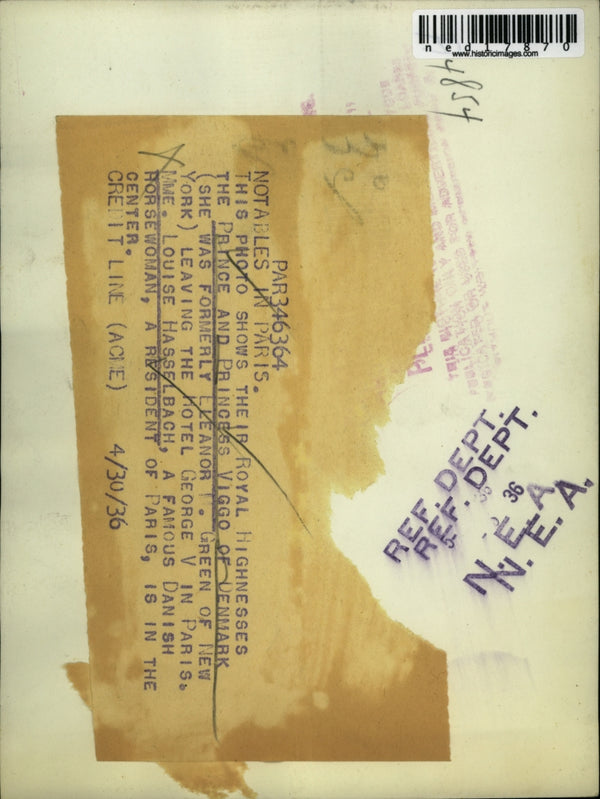 ned17870
www.historicimages.com
4854
PAR346364
NOTABLES IN PARIS.
THIS PHOTO SHOWS THEIR ROYAL HIGHNESSES
THE PRINCE AND PRINCESS VIGGO OF DENMARK
(SHE WAS FORMERLY ELEANOR M. GREEN OF NEW
YORK) LEAVING THE HOTEL GEORGE V IN PARIS.
MME. LOUISE HASSELBACH, A FAMOUS DANISH
HORSEWOMAN, A RESIDENT OF PARIS, IS IN THE
CENTER.
CREDIT LINE (ACME) 4/30/36
REF. DEPT.
REF. DEPT.
36
N. E. A.
N. E. A.